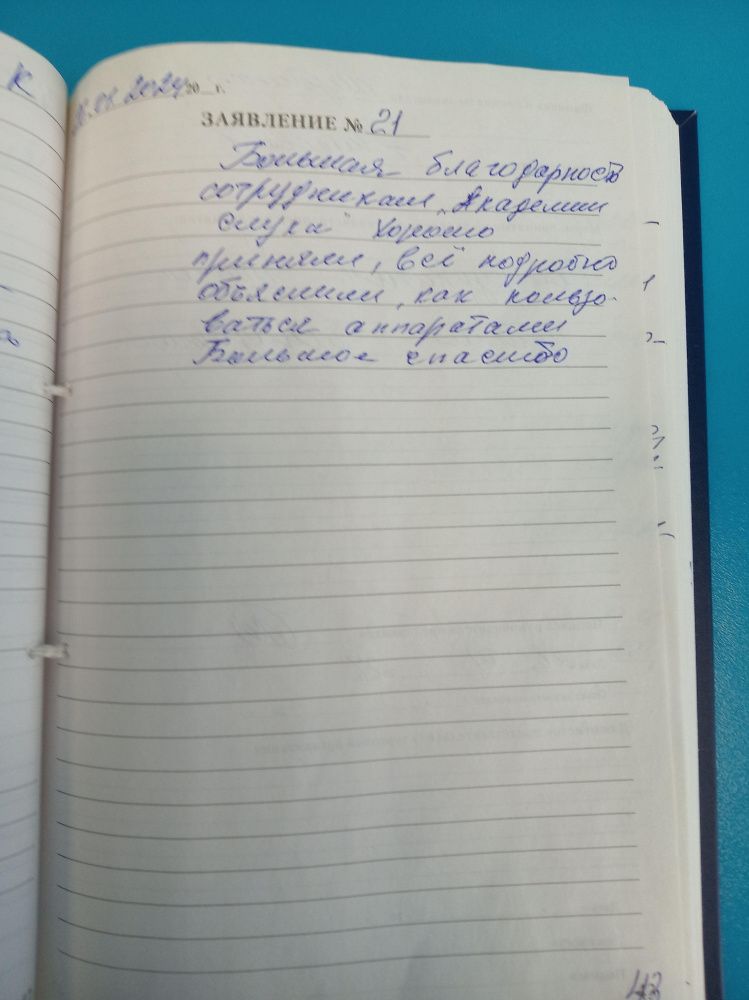 К
.2024 20__г.
ЗАЯВЛЕНИЕ № 21
Большая благодарность
сотрудникам „Академии
слуха" Хорошо
приняли, всё подробно
объяснили, как пользо-
ваться аппаратами
Большое спасибо